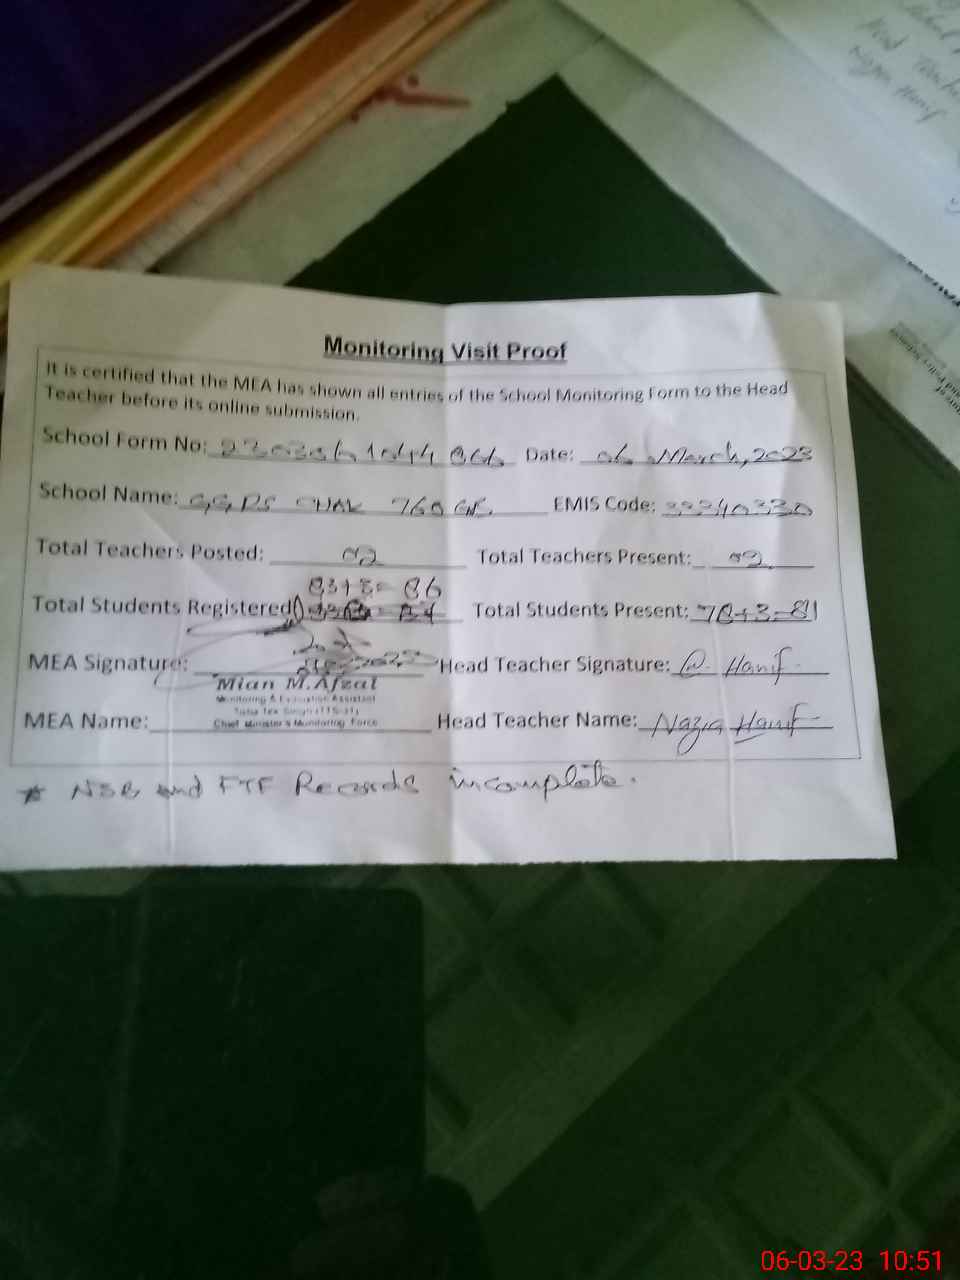 Head Teacher
Nazia Hanif
Monitoring Visit Proof
It is certified that the MEA has shown all entries of the School Monitoring Form to the Head
Teacher before its online submission.
School Form No: Date: 06 March, 2023
School Name: GGPS CHAK 760 GB EMIS Code: 33340330
Total Teachers Posted: 02 Total Teachers Present: 02
83+3= 86
Total Students Registered Total Students Present: 78+3=81
MEA Signature: Head Teacher Signature: Hanif
Mian M.Afzal
Monitoring & Evaluation Assistant
Chief Minister's Monitoring Force
MEA Name: Head Teacher Name: Nazia Hanif
* NSB and FTF Records incomplete.
06-03-23 10:51